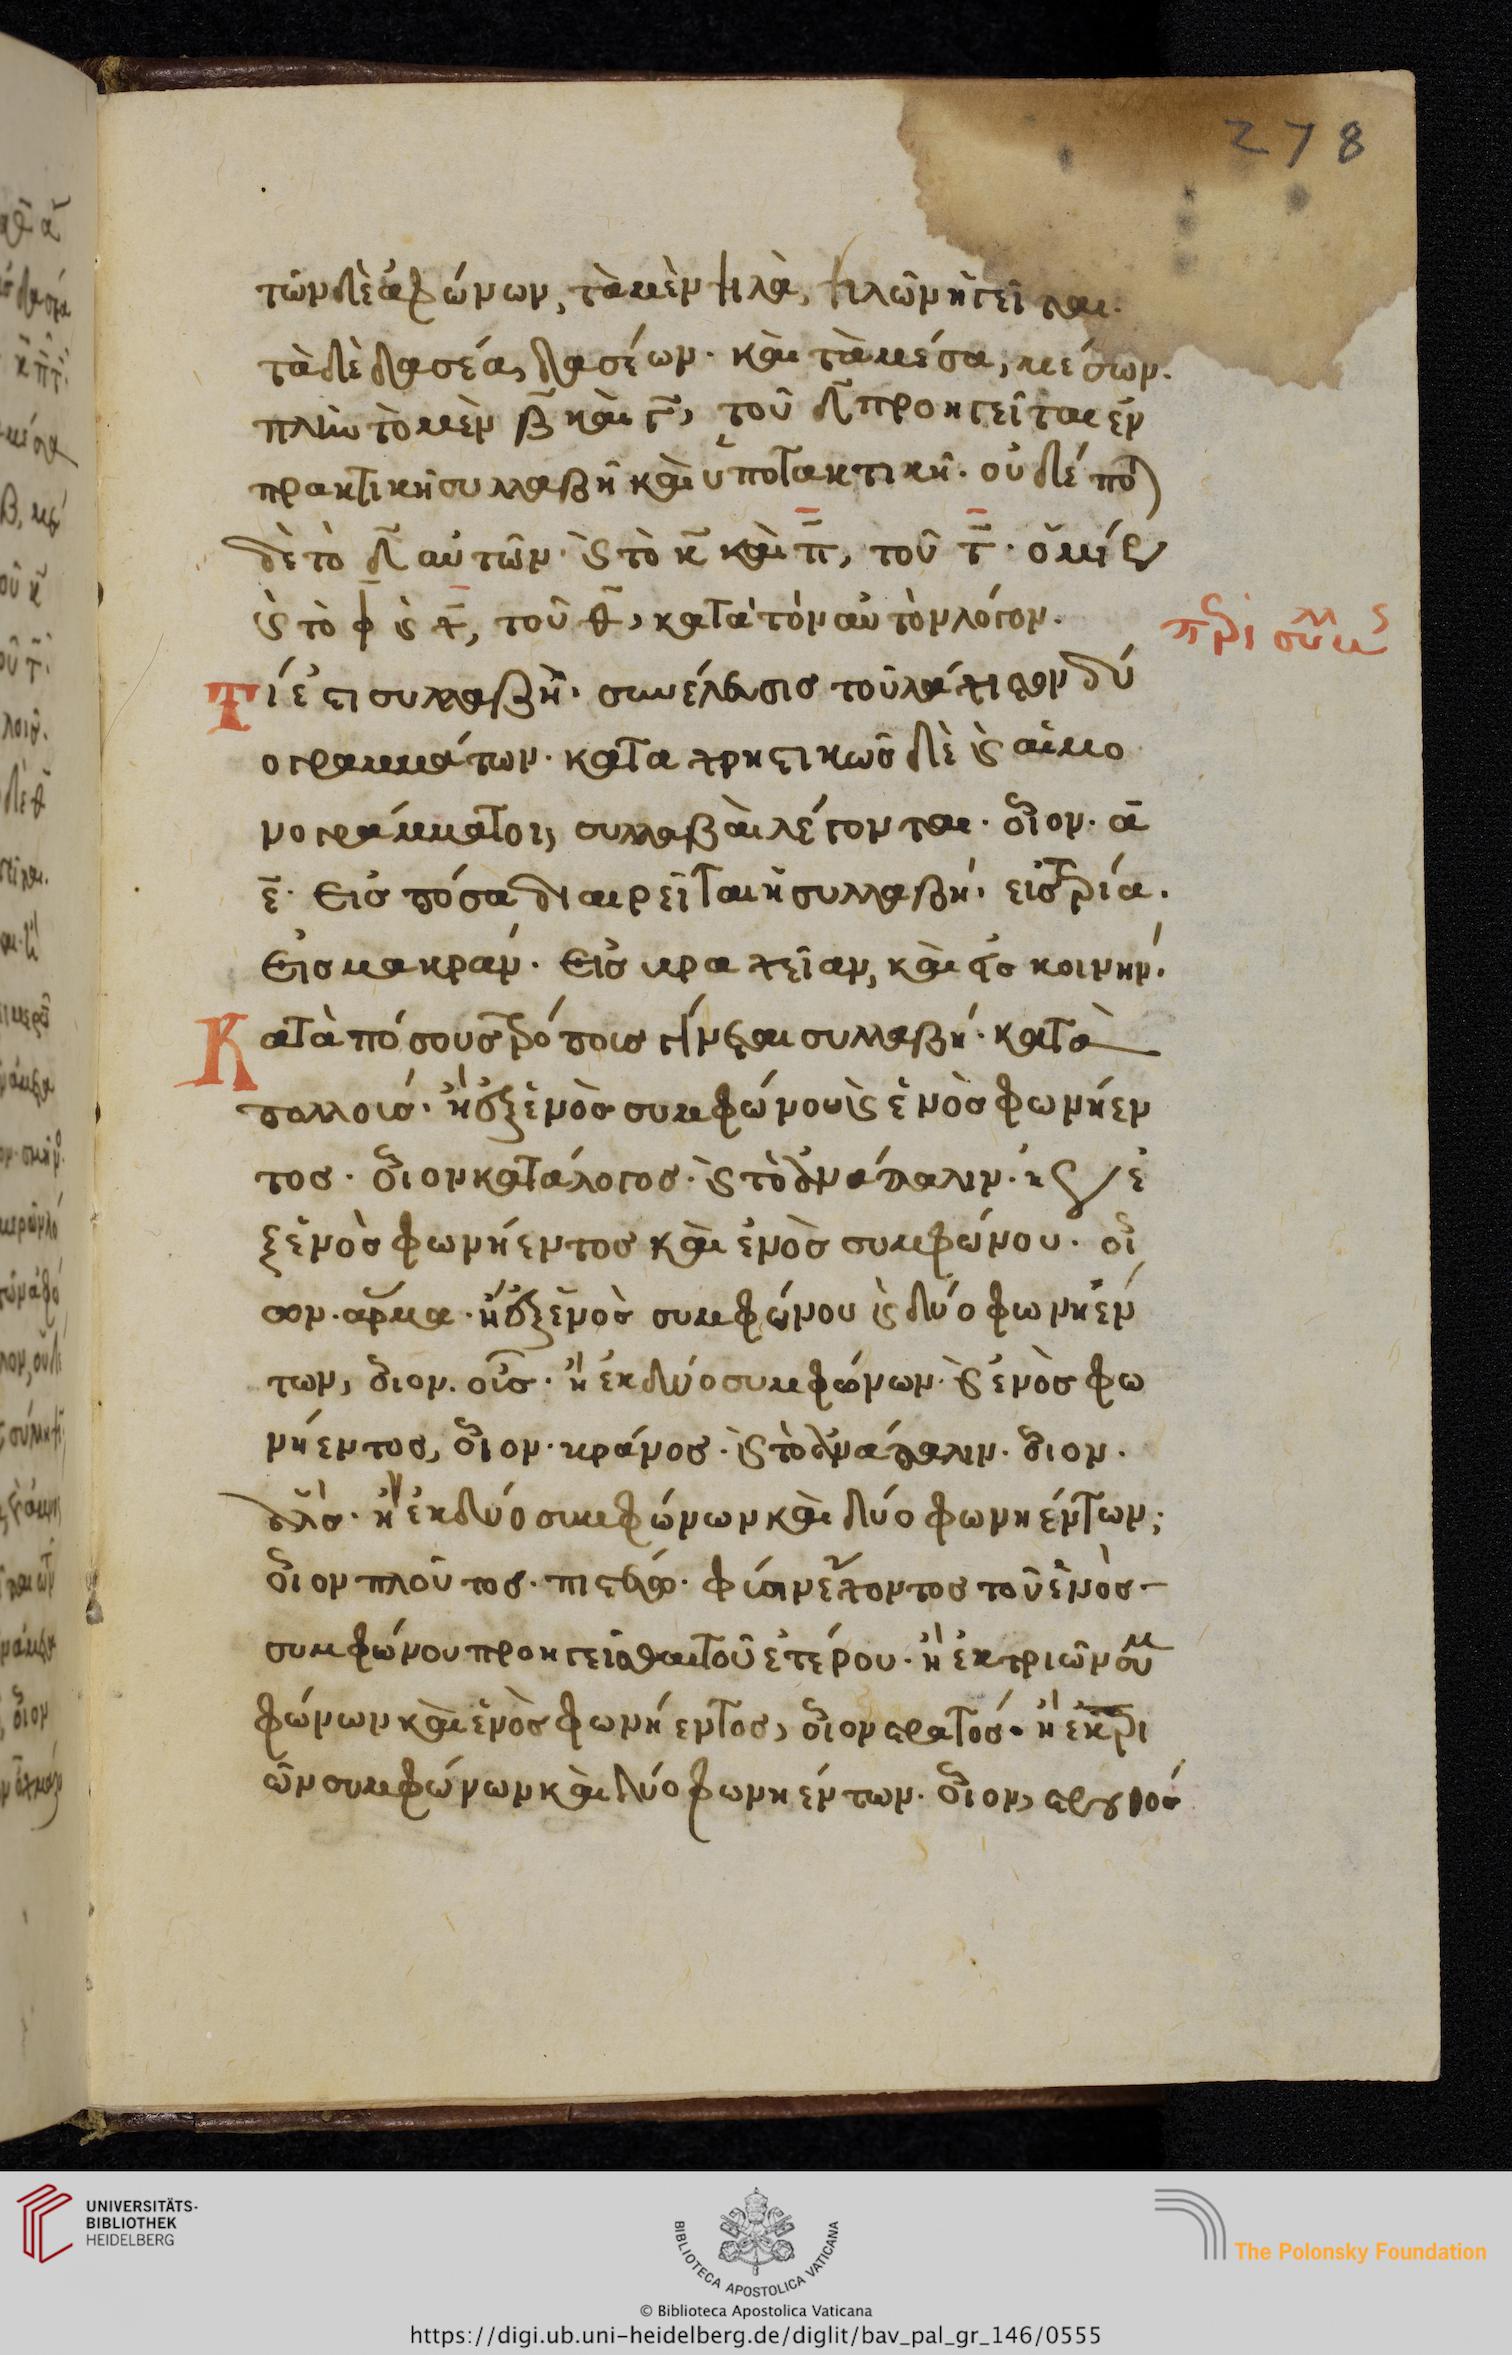 278
τῶν δὲ ἀφώνων, τὰ μὲν ψιλὰ, ψιλῶν ἡγεῖται.
τὰ δὲ δασέα, δασέων. καὶ τὰ μέσα, μέσων.
πλὴν τὸ μὲν β̄ καὶ γ̄, τοῦ δ̄ προηγεῖται ἐν
πρακτικῆ συλλαβῆ καὶ ὑποτακτικῆ. οὐδέποτε
δὲ τὸ δ̄ αὐτῶν. καὶ τὸ κ̄ καὶ π̄, τοῦ τ̄.
καὶ τὸ φ̄ καὶ χ̄, τοῦ θ̄, κατὰ τὸν αὐτὸν λόγον.
περὶ συλλαβῆς
Τί ἐστι συλλαβή. συνέλευσις τοὐλάχιστον δύ
ο γραμμάτων. καταχρηστικῶς δὲ καὶ αἱ μο
νογράμματοι, συλλαβαὶ λέγονται. οἷον. ᾱ
ε̄. Εἰς πόσα διαιρεῖται ἡ συλλαβή. εἰς τρία.
Εἰς μακράν. Εἰς βραχεῖαν, καὶ εἰς κοινήν.
Κατὰ πόσους τρόπους γίνεται συλλαβή. κατὰ
πολλούς. ἢ ἐξ ἑνὸς συμφώνου καὶ ἑνὸς φωνήεν
τος. οἷον κατάλογος. καὶ τὸ ἀνάπαλιν. ἐ
ξ ἑνὸς φωνήεντος καὶ ἑνὸς συμφώνου. οἷ
ον. ἅρμα. ἢ ἐξ ἑνὸς συμφώνου καὶ δύο φωνηέν
των, οἷον. ἢ ἐκ δύο συμφώνων. καὶ ἑνὸς φω
νήεντος, οἷον. κράνος. καὶ τὸ ἀνάπαλιν. οἷον.
ἢ ἐκ δύο συμφώνων καὶ δύο φωνηέντων;
οἷον πλοῦτος. τοῦ ἑνὸς
συμφώνου προηγεῖσθαι τοῦ ἑτέρου. ἢ ἐκ τριῶν συμ
φώνων καὶ ἑνὸς φωνήεντος, οἷον στρατός. ἢ ἐκ τρι
ῶν συμφώνων καὶ δύο φωνηέντων. οἷον, στρουθος
UNIVERSITÄTS-
BIBLIOTHEK
HEIDELBERG
BIBLIOTECA APOSTOLICA VATICANA
The Polonsky Foundation
© Biblioteca Apostolica Vaticana
https://digi.ub.uni-heidelberg.de/diglit/bav_pal_gr_146/0555